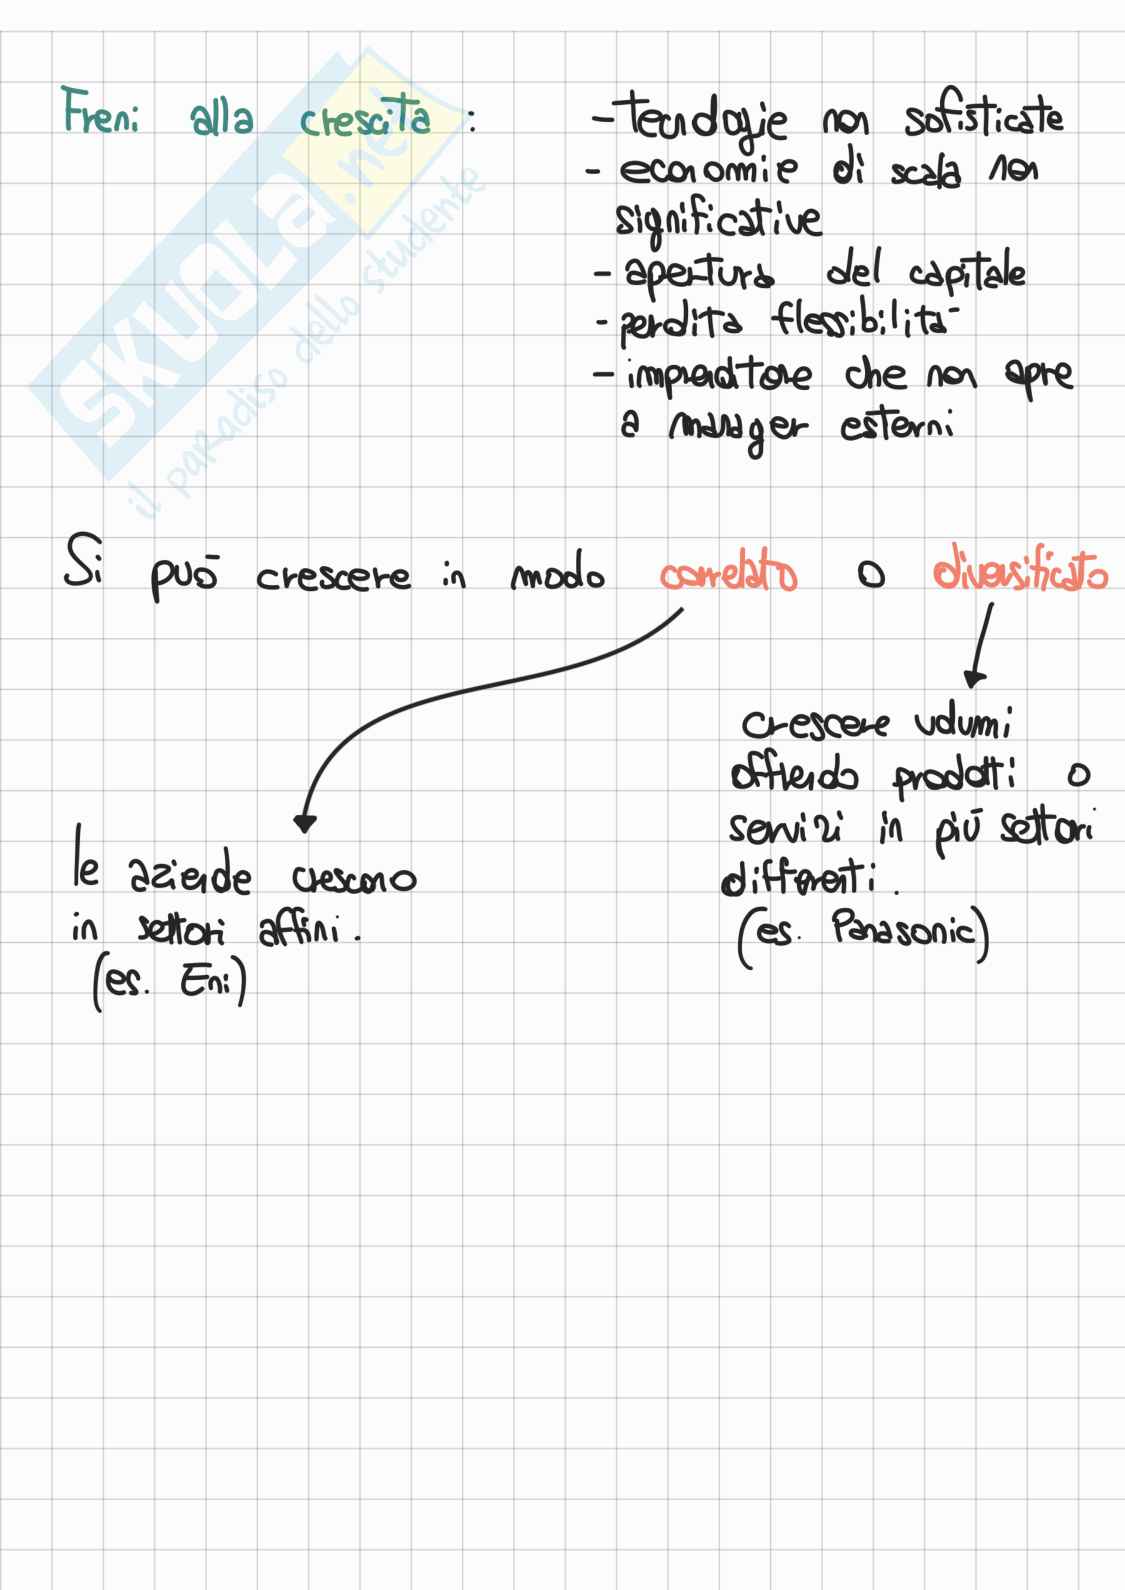 Freni alla crescita : - tecnologie non sofisticate
- economie di scala non
significative
- apertura del capitale
- perdita flessibilità
- imprenditore che non apre
a manager esterni
Si può crescere in modo correlato o diversificato
crescere volumi
offrendo prodotti o
servizi in più settori
differenti.
(es. Panasonic)
le aziende crescono
in settori affini.
(es. Eni)
SKUOLA.net
il paradiso dello studente